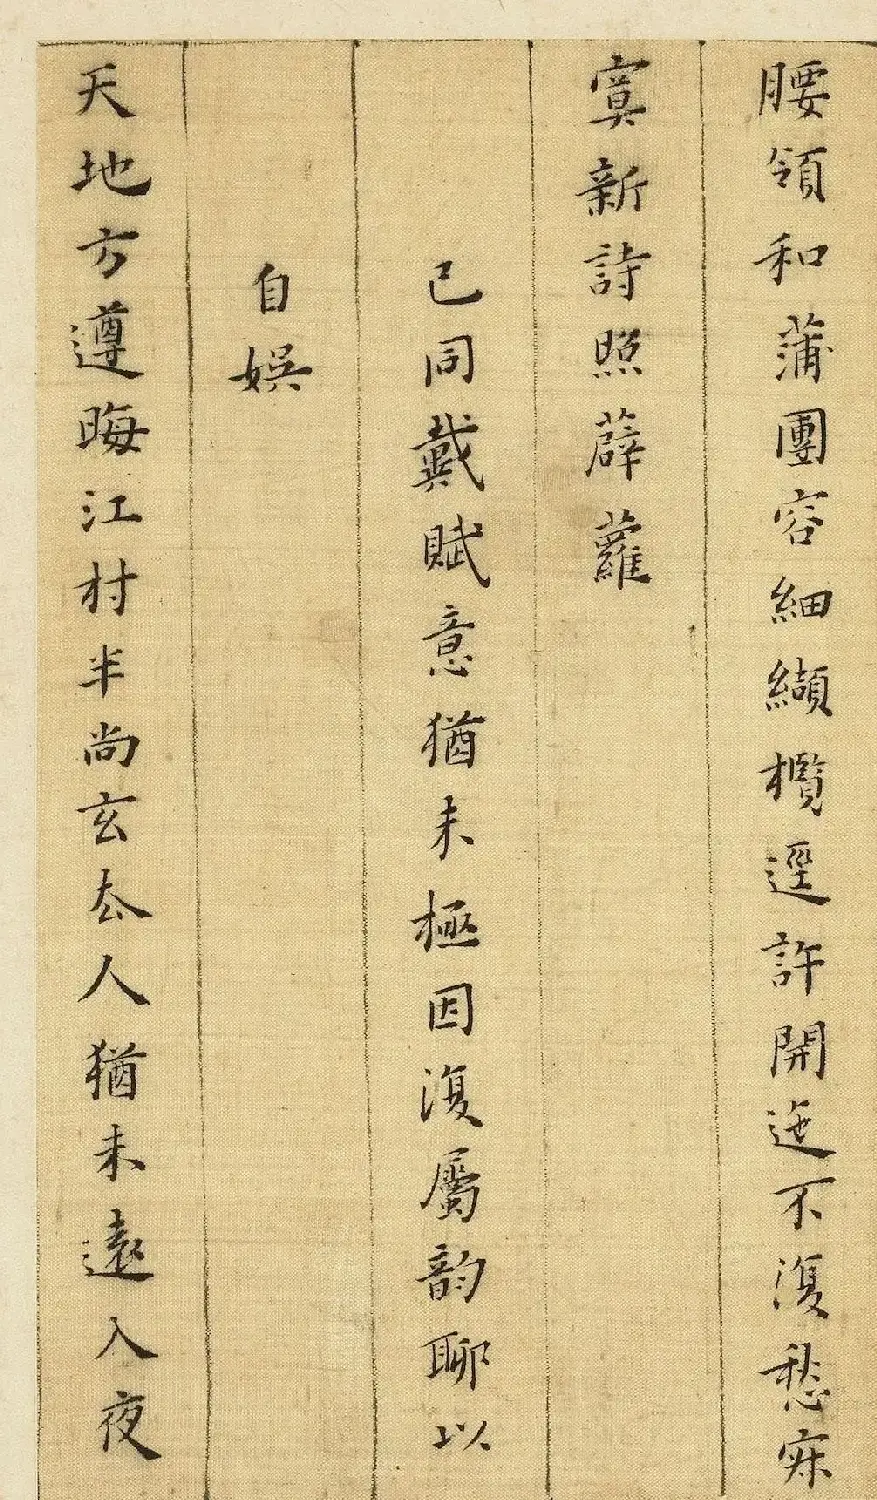 腰領和蒲團容細纈欖逕許開迤不復愁寂
寞新詩照薜蘿
已同戴賦意猶未極因復屬韵聊以
自娛
天地方遵晦江村半尚玄古人猶未遠入夜